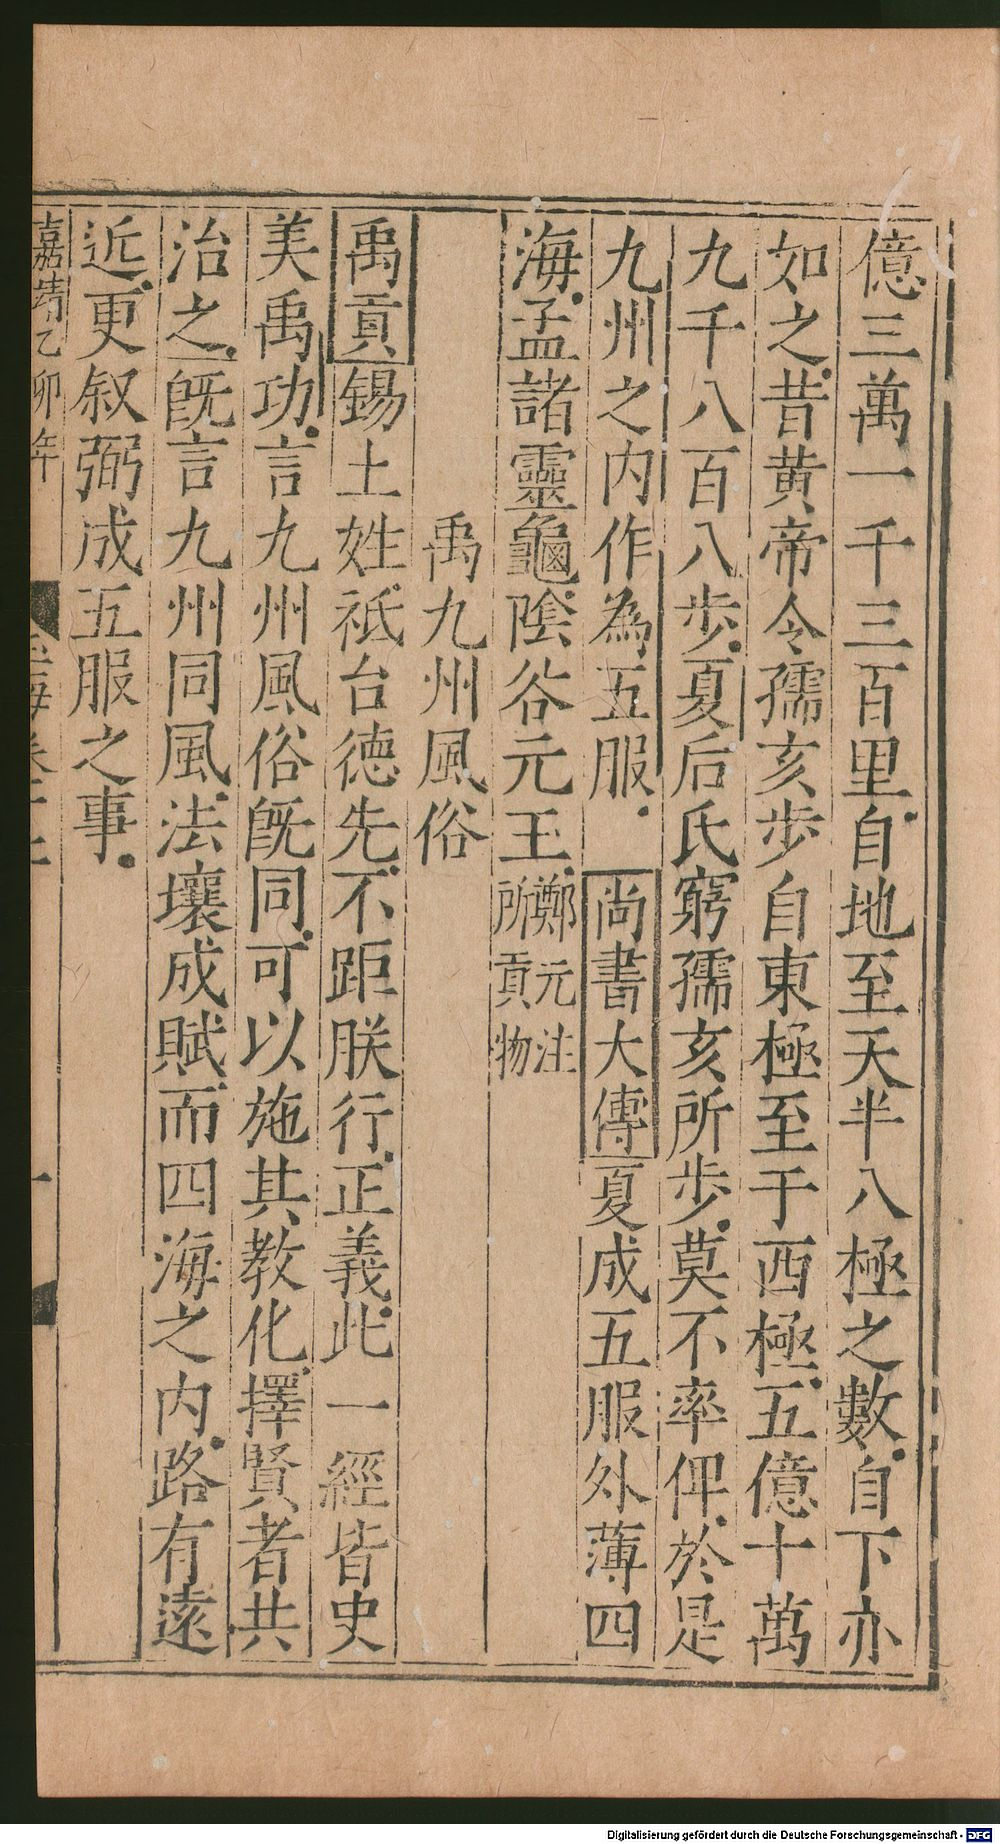 億三萬一千三百里自地至天半八極之數自下亦
如之昔黄帝令孺亥步自東極至于西極五億十萬
九千八百八步夏后氏窮孺亥所步莫不率俾於是
九州之内作為五服尚書大傳夏成五服外薄四
海孟諸靈龜隂谷元玉鄭元注所貢物
禹九州風俗
禹貢錫土姓祗台德先不距朕行正義此一經皆史
美禹功言九州風俗既同可以施其教化擇賢者共
治之既言九州同風法壤成賦而四海之内路有遠
近更叙弼成五服之事
嘉靖乙卯年
Digitalisierung gefördert durch die Deutsche Forschungsgemeinschaft - DFG